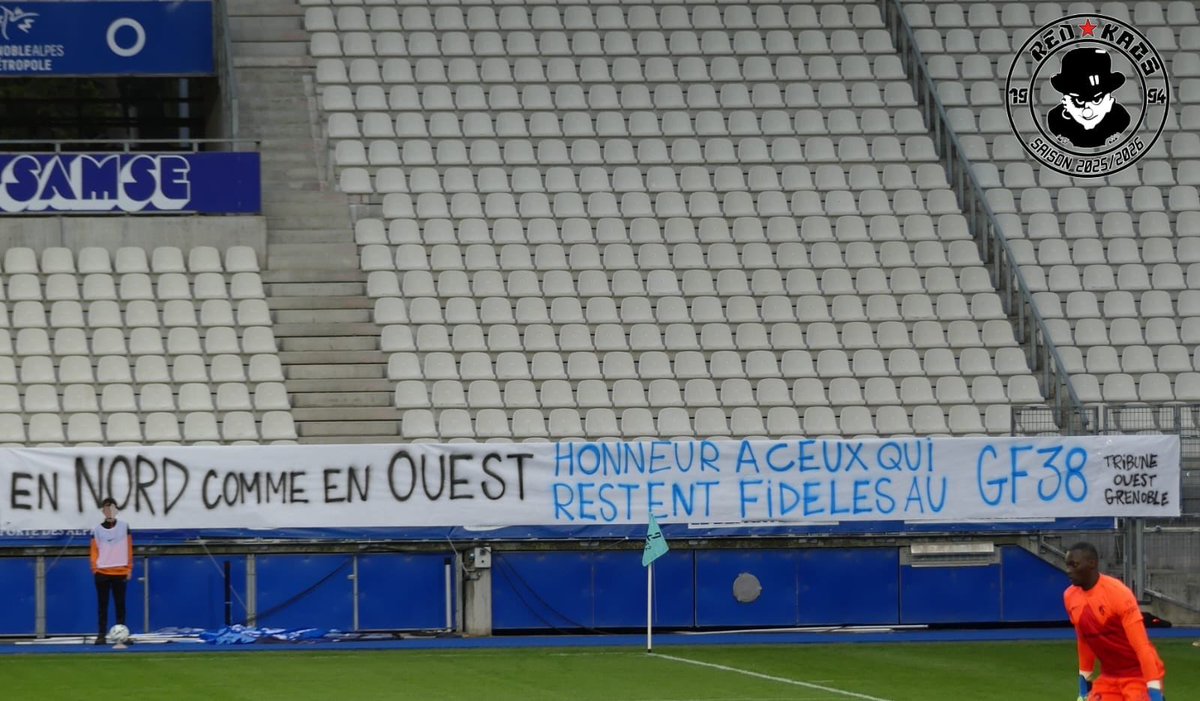 NOBLEALPES
MÉTROPOLE
SAMSE
RED KAOS
1994
SAISON 2025/2026
EN NORD COMME EN OUEST
HONNEUR A CEUX QUI
RESTENT FIDELES AU
GF38
TRIBUNE
OUEST
GRENOBLE